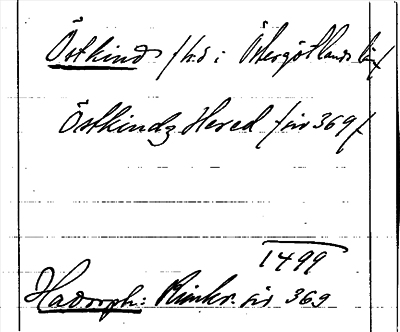 Östkind /hd i Östergötlands län/
Östkindz Hered /sid 369/
1499
Hadorph: Rimkr. sid 369